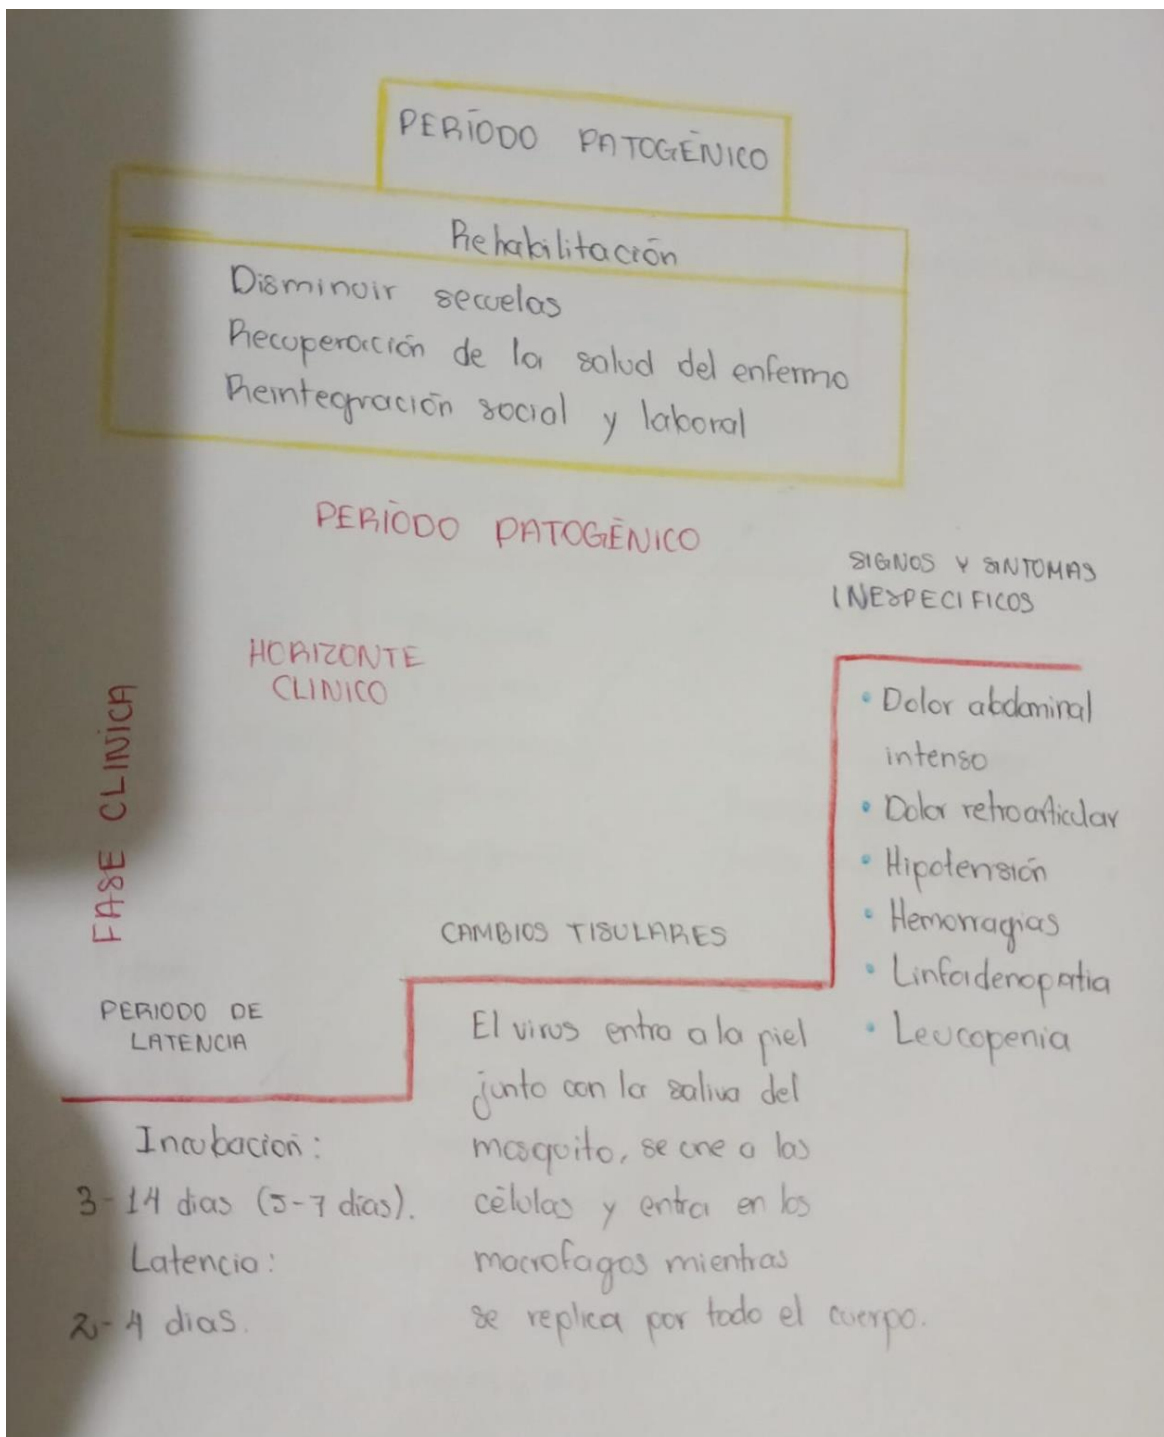 PERÍODO PATOGÉNICO
Rehabilitación
Disminuir secuelas
Recuperación de la salud del enfermo
Reintegración social y laboral
PERÍODO PATOGÉNICO
SIGNOS Y SINTOMAS
INESPECIFICOS
HORIZONTE
CLINICO
FASE CLINICA
• Dolor abdominal
intenso
• Dolor retroarticular
• Hipotensión
• Hemorragias
• Linfadenopatia
• Leucopenia
CAMBIOS TISULARES
El virus entra a la piel
junto con la saliva del
mosquito, se une a las
células y entra en los
macrofagos mientras
se replica por todo el cuerpo.
PERIODO DE
LATENCIA
Incubación:
3-14 dias (5-7 días).
Latencia:
2-4 dias.